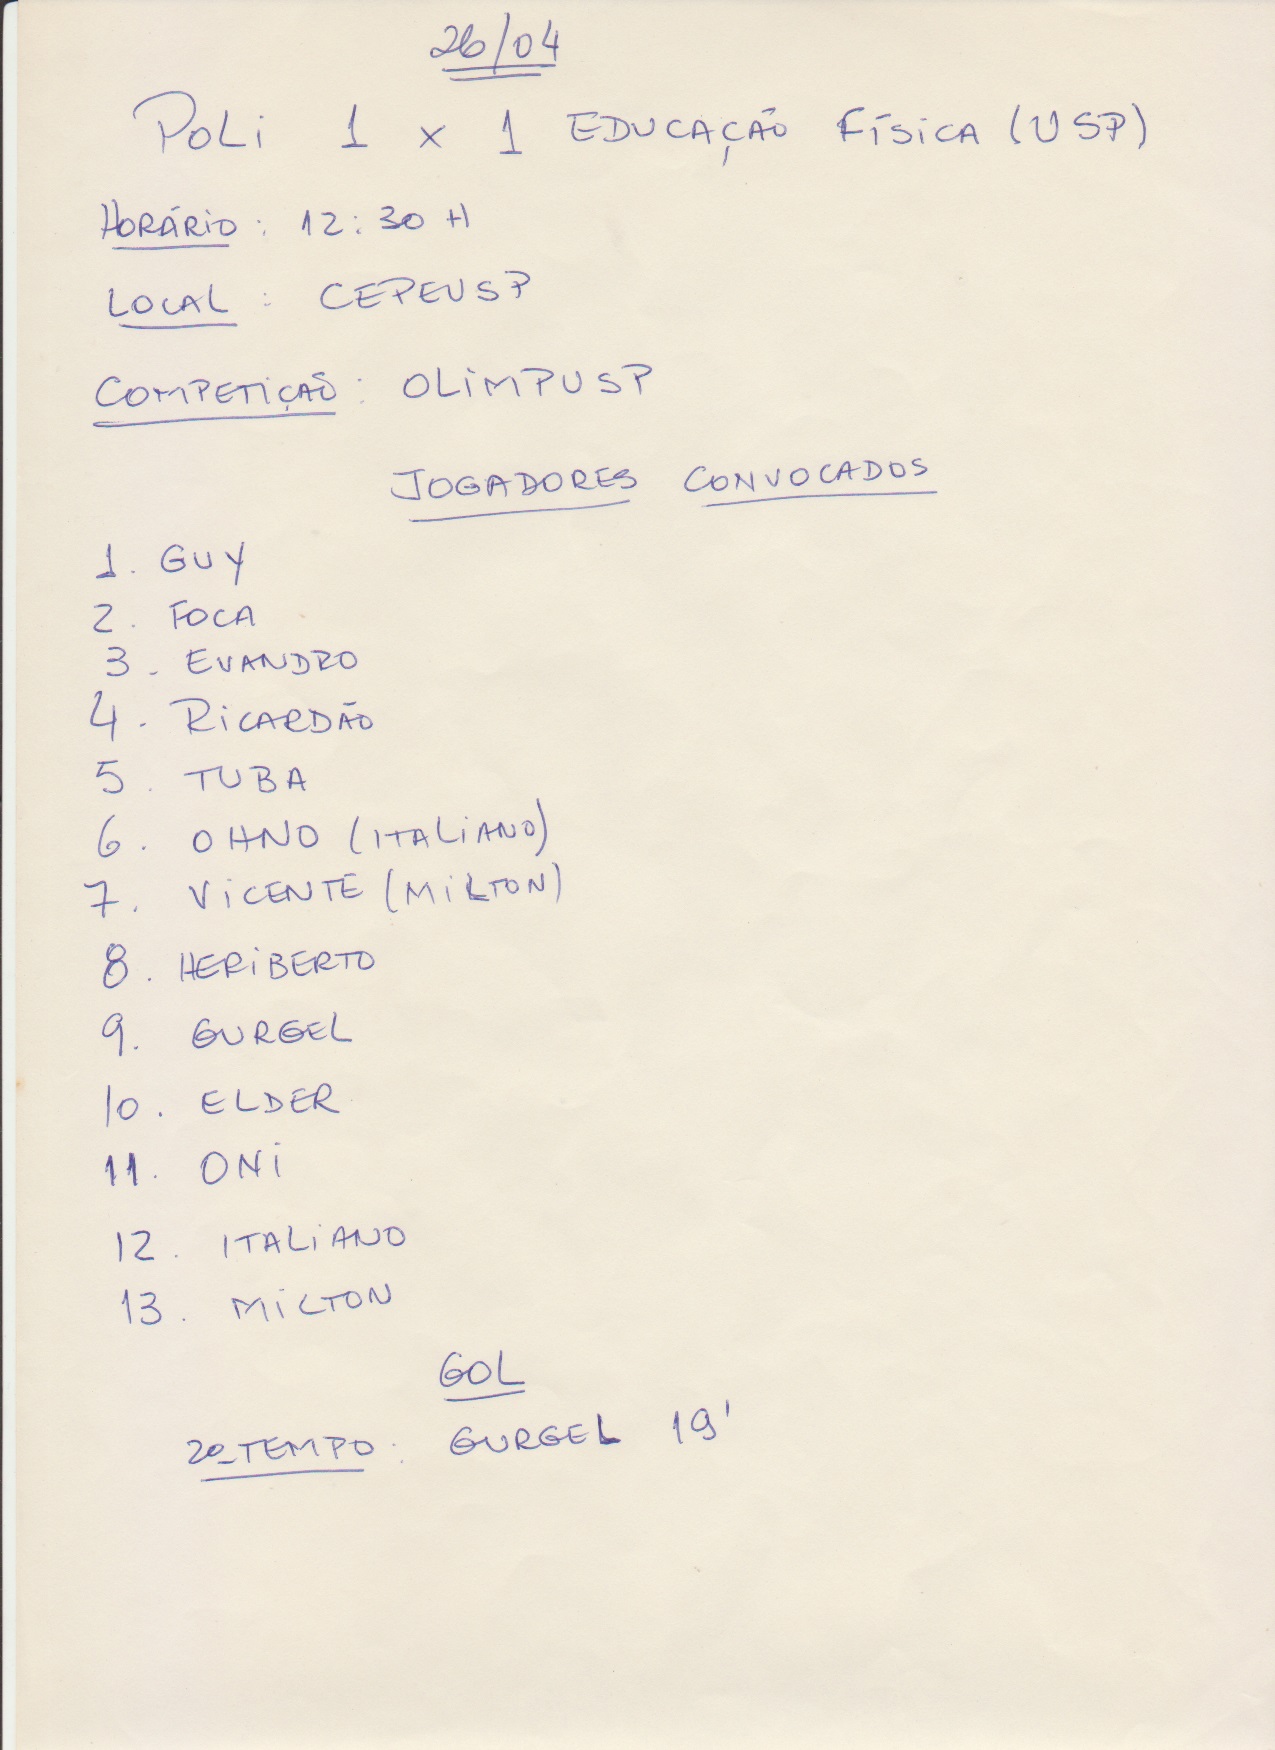 26/04
POLI 1 x 1 EDUCAÇÃO FÍSICA (USP)
HORÁRIO: 12:30 H
LOCAL: CEPEUSP
COMPETIÇÃO: OLIMPUSP
JOGADORES CONVOCADOS
1. GUY
2. FOCA
3. EVANDRO
4. RICARDÃO
5. TUBA
6. OHNO (ITALIANO)
7. VICENTE (MILTON)
8. HERIBERTO
9. GURGEL
10. ELDER
11. ONI
12. ITALIANO
13. MILTON
GOL
2º TEMPO: GURGEL 19'